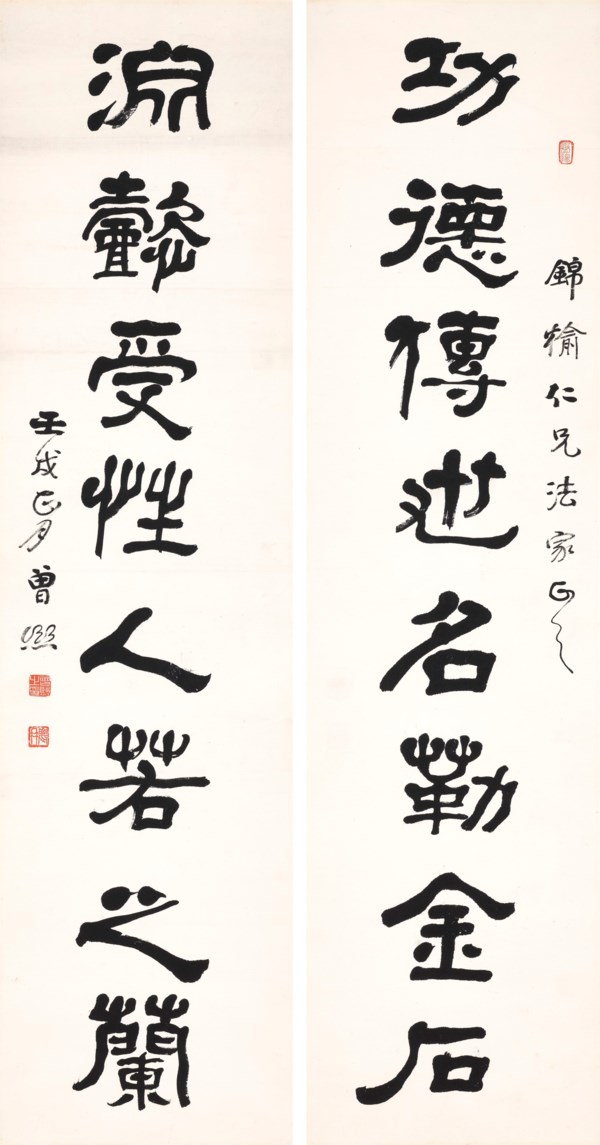 錦愉仁兄法家正之
功德傳世名勒金石
淵懿受性人若之蘭
壬戌正月曾熙